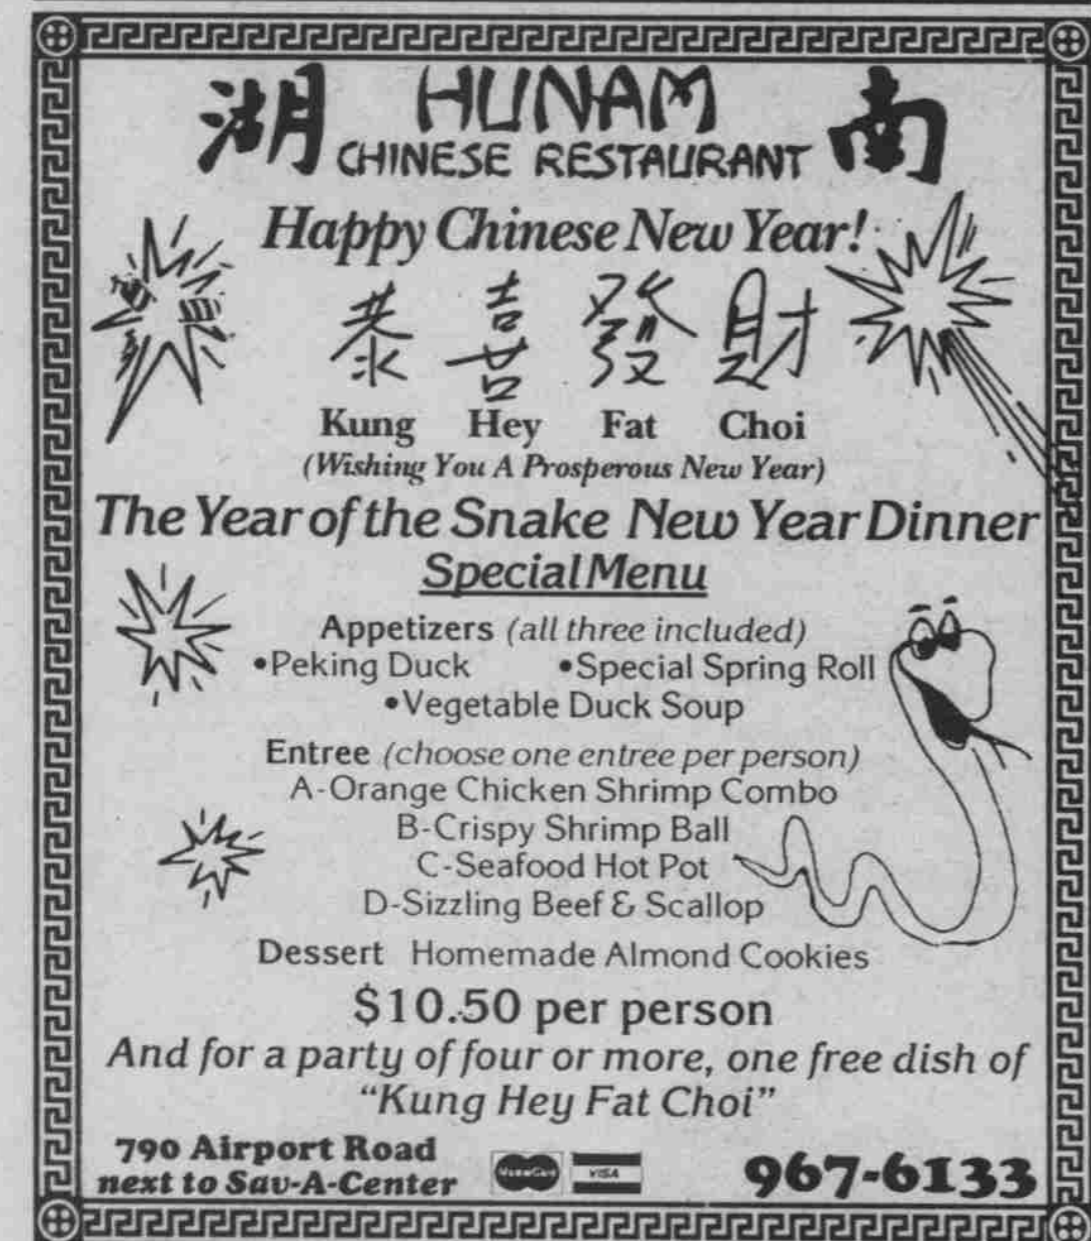 湖 HUNAM 南
CHINESE RESTAURANT
Happy Chinese New Year!
恭喜發財
Kung Hey Fat Choi
(Wishing You A Prosperous New Year)
The Year of the Snake New Year Dinner
Special Menu
Appetizers (all three included)
•Peking Duck •Special Spring Roll
•Vegetable Duck Soup
Entree (choose one entree per person)
A-Orange Chicken Shrimp Combo
B-Crispy Shrimp Ball
C-Seafood Hot Pot
D-Sizzling Beef & Scallop
Dessert Homemade Almond Cookies
$10.50 per person
And for a party of four or more, one free dish of
"Kung Hey Fat Choi"
790 Airport Road
next to Sav-A-Center
MasterCard VISA
967-6133